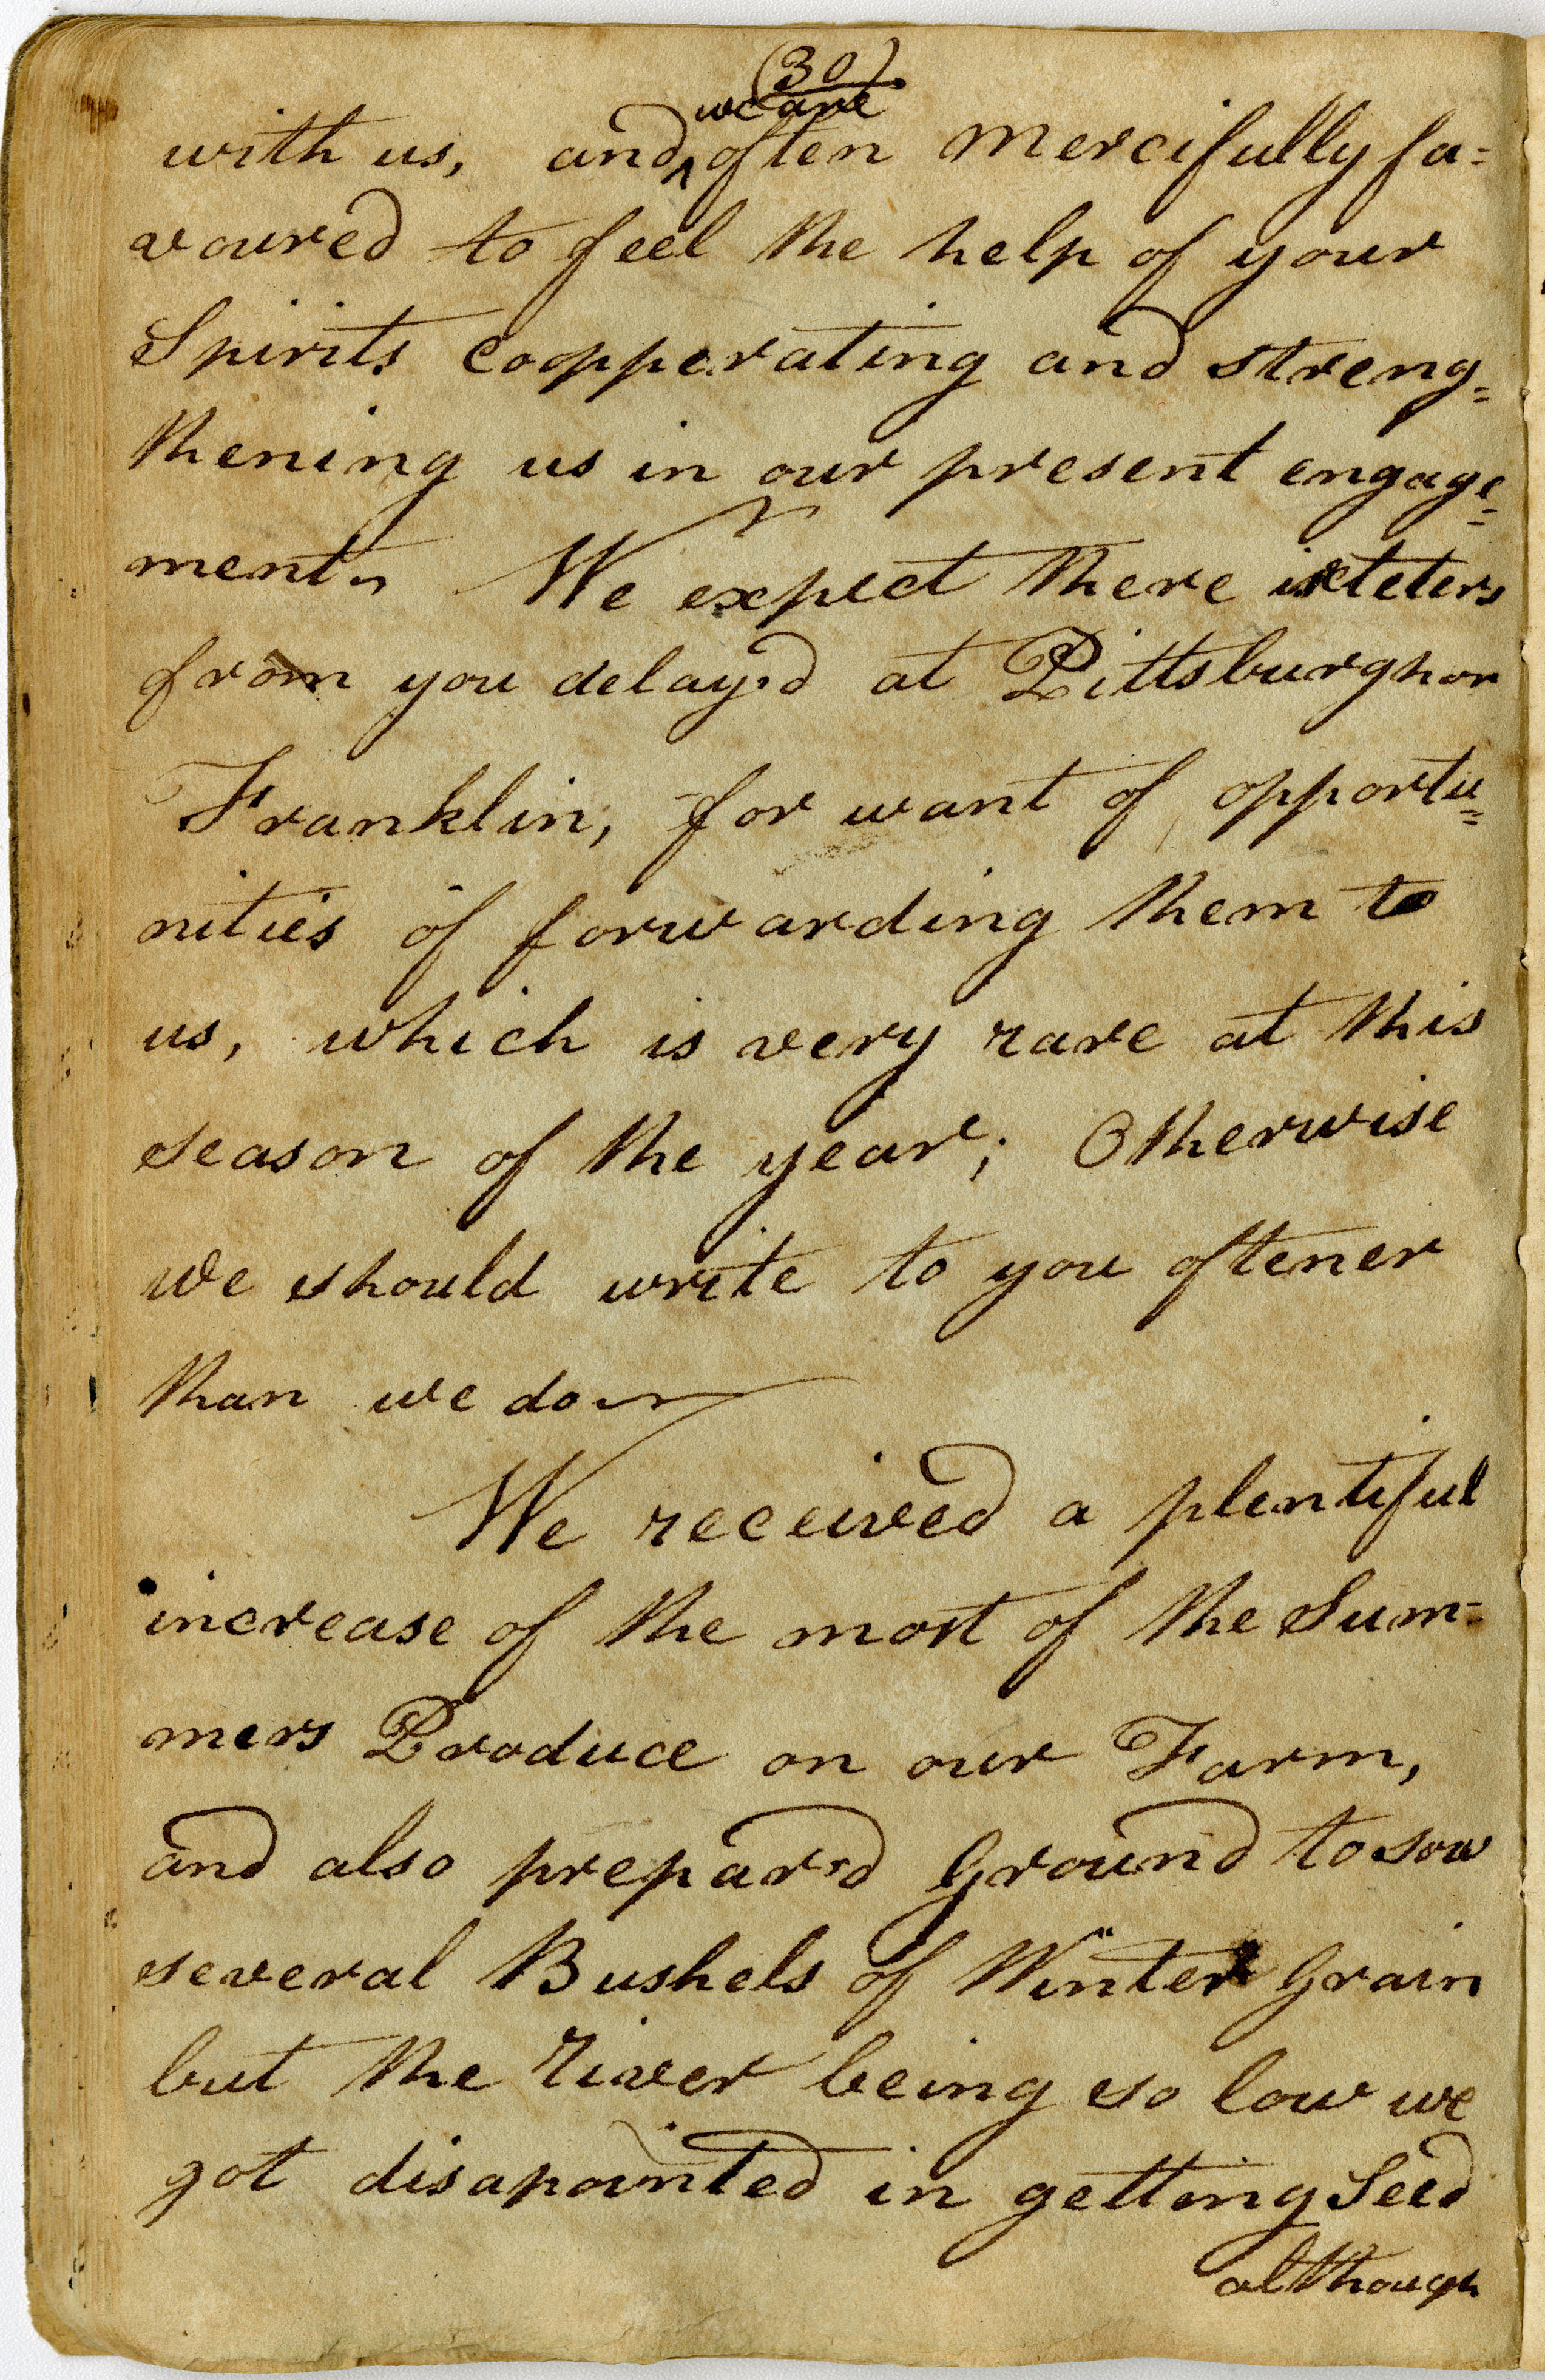 (30)
we are
with us, and ^ often mercifully fa=
voured to feel the help of your
Spirits coopperating and streng=
thening us in our present engage=
ment. We expect there is leters
from you delay.d at Pittsburgh or
Franklin, for want of opportu=
nities of forwarding them to
us, which is very rare at this
season of the year; Otherwise
we should write to you oftener
than we do
We received a plentiful
increase of the most of the Sum=
mers Produce on our Farm,
and also prepar.d Ground to sow
several Bushels of Winter Grain
but the River being so low we
got disapointed in getting Seed
although